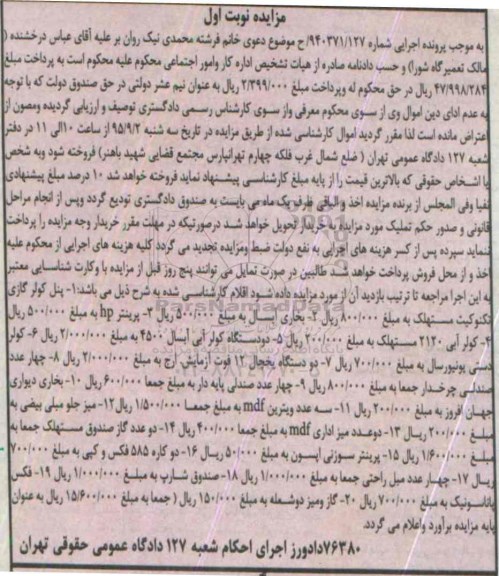 مزایده نوبت اول
به موجب پرونده اجرایی شماره ۹۴۰۳۷۱/۱۲۷/ح موضوع دعوی خانم فرشته محمدی نیک روان بر علیه آقای عباس درخشنده (
مالک تعمیر گاه شورا) و حسب دادنامه صادره از هیات تشخیص اداره کار وامور اجتماعی محکوم علیه محکوم است به پرداخت مبلغ
۴۷/۹۹۸/۲۸۴ ریال در حق محکوم له وپرداخت مبلغ ۲/۳۹۹/۰۰۰ ریال به عنوان نیم عشر دولتی در حق صندوق دولت که با توجه
به عدم ادای دین اموال وی از سوی محکوم معرفی واز سوی کارشناس رسمی دادگستری توصیف و ارزیابی گردیده ومصون از
اعتراض مانده است لذا مقرر گردید اموال کارشناسی شده از طریق مزایده در تاریخ سه شنبه ۹۵/۹/۲ از ساعت ۱۰الی ۱۱ در دفتر
شعبه ۱۲۷ دادگاه عمومی تهران ( ضلع شمال غرب فلکه چهارم تهرانپارس مجتمع قضایی شهید باهنر) فروخته شود وبه شخص
یا اشخاص حقوقی که بالاترین قیمت را از پایه مبلغ کارشناسی پیشنهاد نماید فروخته خواهد شد ۱۰ درصد مبلغ پیشنهادی
نقدا وفی المجلس از برنده مزایده اخذ و الباقی ظرف یک ماه می بایست به صندوق دادگستری تودیع گردد وپس از انجام مراحل
قانونی و صدور حکم تملیک مورد مزایده به خریدار تحویل خواهد شد درصورتیکه در مهلت مقرر خریدار وجه مزایده را پرداخت
ننماید سپرده پس از کسر هزینه های اجرایی به نفع دولت ضبط ومزایده تجدید می گردد کلیه هزینه های اجرایی از محکوم علیه
اخذ و از محل فروش پرداخت خواهد شد طالبین در صورت تمایل می توانند پنج روز قبل از مزایده با وکارت شناسایی معتبر
به این اجرا مراجعه تا ترتیب بازدید آن از مورد مزایده داده شود اقلام کارشناسی شده به شرح ذیل می باشد:۱- پنل کولر گازی
تکنوکیت مستهلک به مبلغ ۸۰۰/۰۰۰ ریال ۲- بخاری آبسال به مبلغ ۵۰۰/۰۰۰ ریال ۳- پرینتر hp به مبلغ ۵۰۰/۰۰۰ ریال
۴- کولر آبی ۲۱۲۰ مستهلک به مبلغ ۲۰۰/۰۰۰ ریال ۵- دودستگاه کولر آبی آبسال ۴۵۰۰ به مبلغ ۲/۰۰۰/۰۰۰ ریال ۶- کولر
دستی یونیورسال به مبلغ ۷۰۰/۰۰۰ ریال ۷- دو دستگاه یخچال ۱۲ فوت آزمایش ارج به مبلغ ۲/۰۰۰/۰۰۰ ریال ۸- چهار عدد
صندلی چرخدار جمعا به مبلغ ۸۰۰/۰۰۰ ریال ۹- چهار عدد صندلی پایه دار به مبلغ جمعا ۶۰۰/۰۰۰ ریال ۱۰- بخاری دیواری
جهان افروز به مبلغ ۲۰۰/۰۰۰ ریال ۱۱- سه عدد ویترین mdf به مبلغ جمعا ۱/۵۰۰/۰۰۰ ریال ۱۲- میز جلو مبلی بیضی به
مبلغ ۲۰۰/۰۰۰ ریال ۱۳- دوعدد میز اداری mdf به مبلغ جمعا ۴۰۰/۰۰۰ ریال ۱۴- دو عدد گاز صندوق مستهلک جمعا به
مبلغ ۱/۶۰۰/۰۰۰ ریال ۱۵- پرینتر سوزنی اپسون به مبلغ ۵۰/۰۰۰ ریال ۱۶- دو کاره ۵۸۵ فکس و کپی به مبلغ ۷۰۰/۰۰۰
ریال ۱۷- چهار عدد مبل راحتی جمعا به مبلغ ۱/۰۰۰/۰۰۰ ریال ۱۸- صندوق شارپ به مبلغ ۱/۰۰۰/۰۰۰ ریال ۱۹- فکس
پاناسونیک به مبلغ ۷۰۰/۰۰۰ ریال ۲۰- گاز ومیز دوشعله به مبلغ ۱۵۰/۰۰۰ ریال ( جمعا به مبلغ ۱۵/۶۰۰/۰۰۰ ریال به عنوان
پایه مزایده برآورد واعلام می گردد.
۷۶۳۸۰دادورز اجرای احکام شعبه ۱۲۷ دادگاه عمومی حقوقی تهران